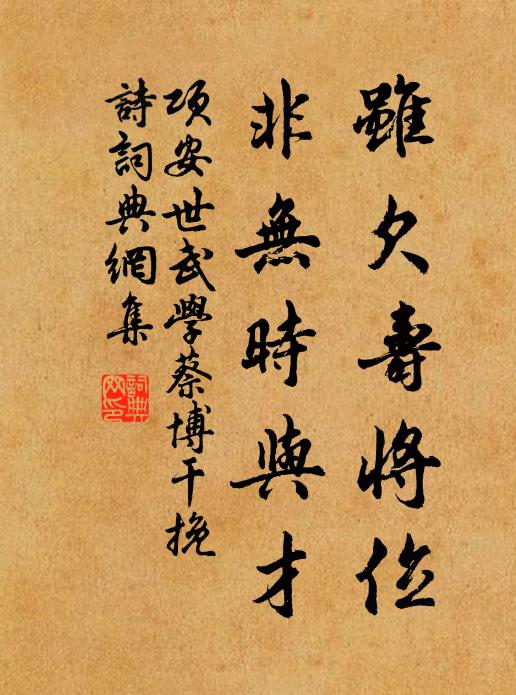 雖欠壽將位
非無時與才
項安世武學蔡博干挽
詩詞典網集
詞典網印